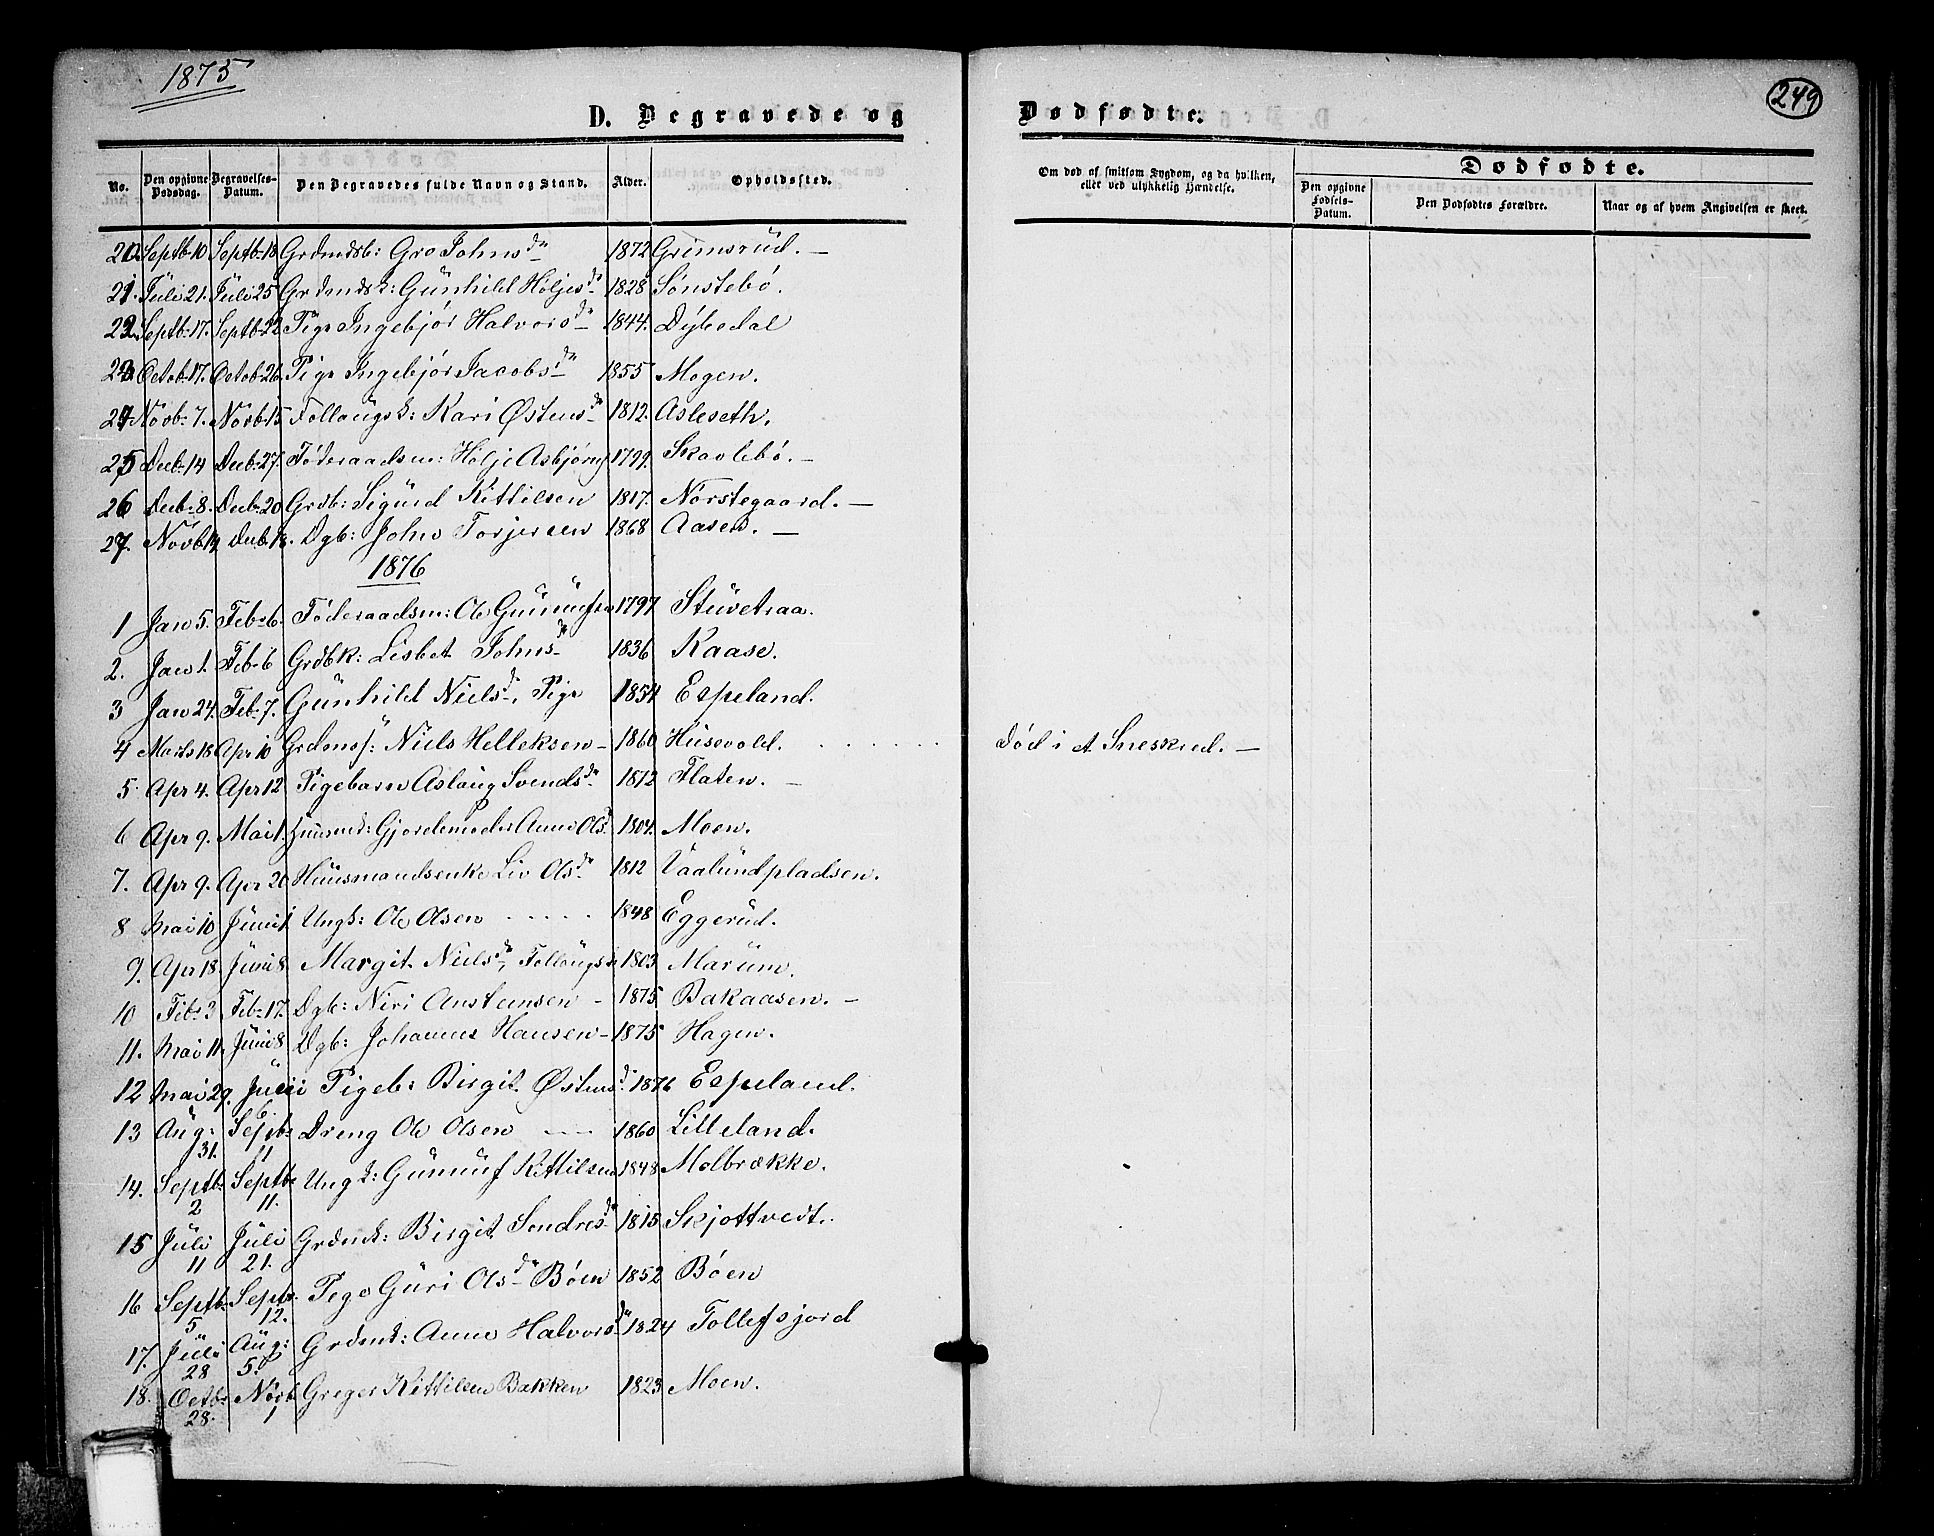 1875
249
D. Begravede og Dødfødte.
No. Den opgivne Dødsdag. Begravelses-Datum. Den Begravedes fulde Navn og Stand. Alder. Opholdssted. Om død af smitsom Sygdom, og da hvilken, eller ved ulykkelig Hændelse. Dødfødte.
Den opgivne Fødsels-Datum. Den Dødfødtes Forældre. Naar og af hvem Angivelsen er skeet.
20 Septb. 10 Septb. 18 Grdmdsb: Gro Johnsdr 1872 Grimsrud. —
21. Juli 21. Juli 25 Grdmdsk: Gunhild Høljesdr 1828 Sønstebø.
22. Septb. 17. Septb. 22 Pige Ingebjør Halvorsdr 1844. Dybedal
23. Octob. 17. Octob. 26. Pige Ingebjør Jacobsdr 1855 Mogen.
24 Novb. 7. Novb. 15 Follaugsk: Kari Østensdr 1812. Asleseth.
25 Decb. 14 Decb. 27. Føderaadsm: Hølje Asbjørns 1799. Skavlebø. —
26 Decb. 8. Decb. 20 Grdb: Sigurd Kittilsen 1817. Norstegaard. —
27. Novb. 19 Decb. 18. Dgb: John Torjersen 1868 Aasen. —
1876
1 Jan 5. Feb. 6. Føderaadsm: Ole Gunnufsen 1797 Stuvetraa.
2. Jan 1. Feb. 6 Grdbk: Lisbet Johnsdr 1836 Kaase.
3 Jan 24. Feb. 7. Gunhild Nielsdr, Pige 1854 Espeland.
4 Marts 18 Apr 10 Grdmss: Niels Helleksen — 1860 Husevold. . . . . . . død i et Sneskred. —
5. Apr 4. Apr 12 Pigebarn Aslaug Svendsdr 1872 Flaten. —
6 Apr 9. Mai 1. Gjordemoder Anne Olsd 1804. Moen.
7. Apr 9. Apr 20 Huusmandsenke Liv Olsdr 1812 Vaalundpladsen.
8 Mai 10 Juni 1. Ungk: Ole Olsen . . . . . 1848 Eggerud.
9. Apr 18. Juni 8. Margit Nielsdr, Follaugsk 1803 Marum.
10 Feb. 3 Feb. 17. Dgb: Niri Anstensen — 1875 Bakaasen. —
11. Mai 11. Juni 8. Dgb: Johannes Hansen — 1875 Hagen.
12 Mai 29. Juni 6. Pigeb: Birgit Østensd. 1876 Espeland.
13 Aug: 31. Septb. 11 Dreng Ole Olsen — 1860 Lilleland.
14. Septb. 2 Septb. 11. Ungk: Gunnuf Kittilsen 1848 Molbrække.
15 Juli 11 Juli 21. Grdmdk: Birgit Sondresdr 1815 Skjottvedt.
16 Septb. 5 Septb. 12. Pige Guri Olsdr Bøen 1852 Bøen
17. Juli 28 Aug: 5. Grdmdk: Anne Halvorsdr 1824 Tollefsjord
18. Octbr 28. Novb 1 Greger Kittilsen Bakken 1823 Moen.